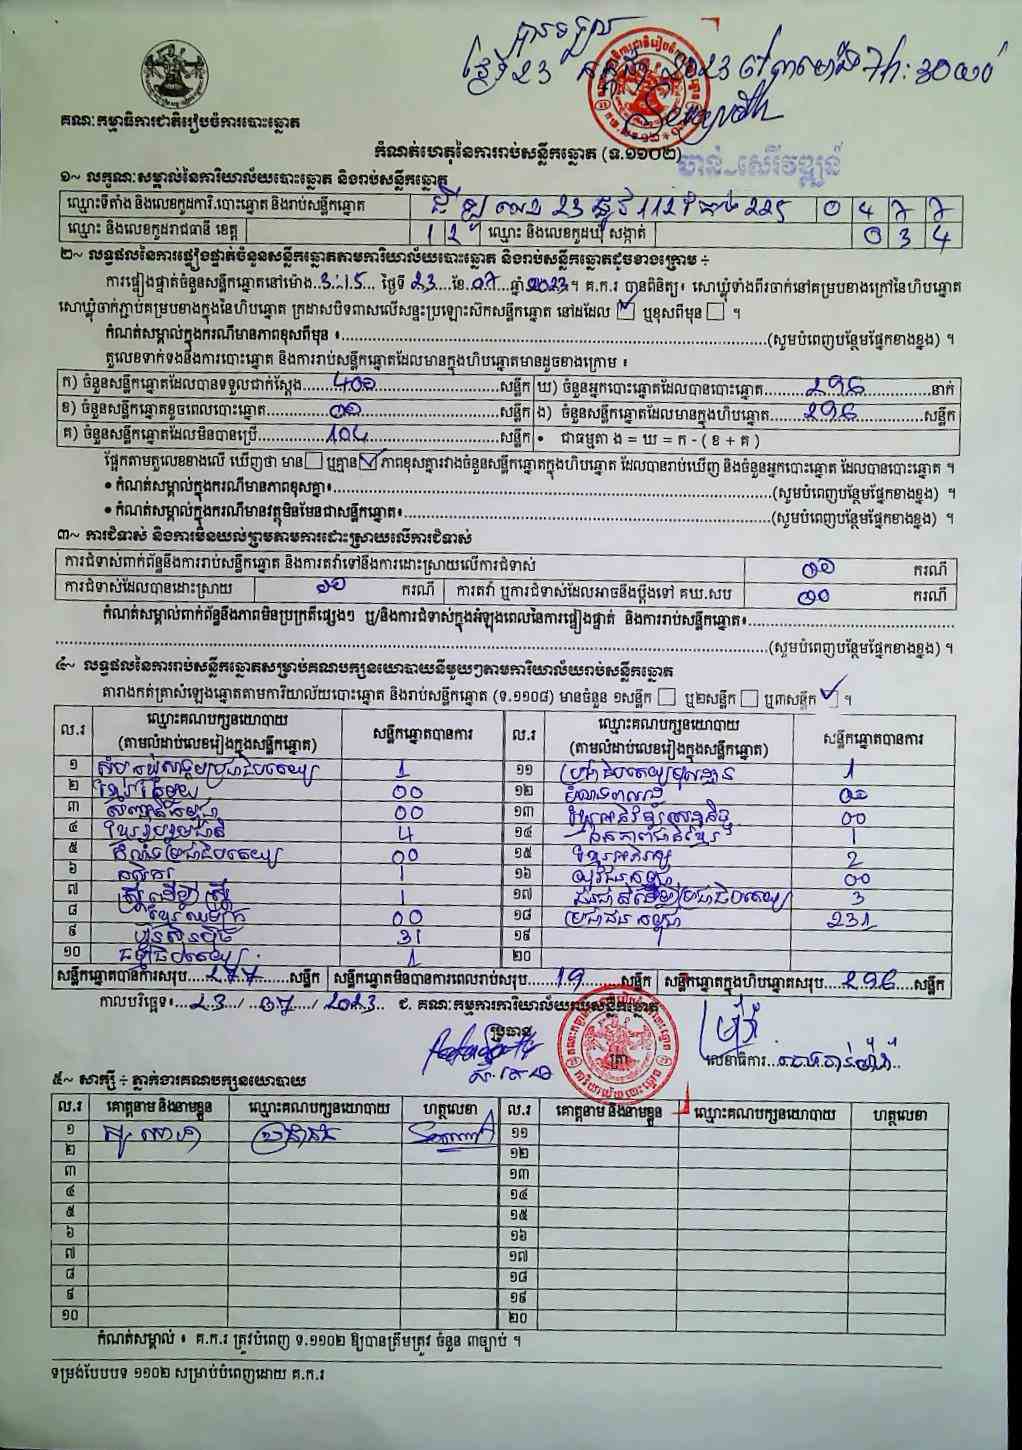 បានទទួល
ថ្ងៃទី23 កក្កដា 2023 វេលាម៉ោង
គណៈកម្មាធិការជាតិរៀបចំការបោះឆ្នោត
កំណត់ហេតុនៃការរាប់សន្លឹកឆ្នោត (ទ.១១០២)
ចាន់ សេរីវឌ្ឍន៍
១~ លក្ខណៈសម្គាល់នៃការិយាល័យបោះឆ្នោត និងរាប់សន្លឹកឆ្នោត
ឈ្មោះទីតាំង និងលេខកូដការិ.បោះឆ្នោត និងរាប់សន្លឹកឆ្នោត 0 4 7 7
ឈ្មោះ និងលេខកូដរាជធានី ខេត្ត 1 2 ឈ្មោះ និងលេខកូដឃុំ សង្កាត់ 0 3 4
២~ លទ្ធផលនៃការផ្ទៀងផ្ទាត់ចំនួនសន្លឹកឆ្នោតតាមការិយាល័យបោះឆ្នោត និងរាប់សន្លឹកឆ្នោតដូចខាងក្រោម ÷
ការផ្ទៀងផ្ទាត់ចំនួនសន្លឹកឆ្នោតនៅម៉ោង..3:15... ថ្ងៃទី 23....ខែ.07...ឆ្នាំ 2023។ គ.ក.រ បានពិនិត្យ៖ សោឃ្លុំទាំងពីរចាក់នៅគម្របខាងក្រៅនៃហិបឆ្នោត
សោឃ្លុំចាក់ភ្ជាប់គម្របខាងក្នុងនៃហិបឆ្នោត ក្រដាសបិទពាសលើសន្ទះប្រឡោះស៊កសន្លឹកឆ្នោត នៅដដែល ☑ ឬខុសពីមុន ☐ ។
កំណត់សម្គាល់ក្នុងករណីមានភាពខុសពីមុន ៖..........(សូមបំពេញបន្ថែមផ្នែកខាងខ្នង) ។
តួលេខទាក់ទងនឹងការបោះឆ្នោត និងការរាប់សន្លឹកឆ្នោតដែលមានក្នុងហិបឆ្នោតមានដូចខាងក្រោម ៖
ក) ចំនួនសន្លឹកឆ្នោតដែលបានទទួលជាក់ស្តែង....400....សន្លឹក ឃ) ចំនួនអ្នកបោះឆ្នោតដែលបានបោះឆ្នោត....296....នាក់
ខ) ចំនួនសន្លឹកឆ្នោតខូចពេលបោះឆ្នោត....00....សន្លឹក ង) ចំនួនសន្លឹកឆ្នោតដែលមានក្នុងហិបឆ្នោត....296....សន្លឹក
គ) ចំនួនសន្លឹកឆ្នោតដែលមិនបានប្រើ....104....សន្លឹក • ជាធម្មតា ង = ឃ = ក - ( ខ + គ )
ផ្អែកតាមតួលេខខាងលើ ឃើញថា មាន☐ ឬគ្មាន☑ ភាពខុសគ្នារវាងចំនួនសន្លឹកឆ្នោតក្នុងហិបឆ្នោត ដែលបានរាប់ឃើញ និងចំនួនអ្នកបោះឆ្នោត ដែលបានបោះឆ្នោត ។
• កំណត់សម្គាល់ក្នុងករណីមានភាពខុសគ្នា៖..........(សូមបំពេញបន្ថែមផ្នែកខាងខ្នង) ។
• កំណត់សម្គាល់ក្នុងករណីមានវត្ថុមិនមែនជាសន្លឹកឆ្នោត៖..........(សូមបំពេញបន្ថែមផ្នែកខាងខ្នង) ។
៣~ ការជំទាស់ និងការមិនយល់ព្រមតាមការដោះស្រាយលើការជំទាស់
ការជំទាស់ពាក់ព័ន្ធនឹងការរាប់សន្លឹកឆ្នោត និងការតវ៉ាទៅនឹងការដោះស្រាយលើការជំទាស់ 00 ករណី
ការជំទាស់ដែលបានដោះស្រាយ 00 ករណី ការតវ៉ា ឬការជំទាស់ដែលអាចនឹងប្តឹងទៅ គឃ.សប 00 ករណី
កំណត់សម្គាល់ពាក់ព័ន្ធនឹងភាពមិនប្រក្រតីផ្សេងៗ ឬ/និងការជំទាស់ក្នុងអំឡុងពេលនៃការផ្ទៀងផ្ទាត់ និងការរាប់សន្លឹកឆ្នោត៖..........
..........(សូមបំពេញបន្ថែមផ្នែកខាងខ្នង) ។
៤~ លទ្ធផលនៃការរាប់សន្លឹកឆ្នោតសម្រាប់គណបក្សនយោបាយនីមួយៗតាមការិយាល័យរាប់សន្លឹកឆ្នោត
តារាងកត់ត្រាសំឡេងឆ្នោតតាមការិយាល័យបោះឆ្នោត និងរាប់សន្លឹកឆ្នោត (ទ.១១០៨) មានចំនួន ១សន្លឹក ☐ ឬ២សន្លឹក ☐ ឬ៣សន្លឹក ☑ ។
ល.រ ឈ្មោះគណបក្សនយោបាយ (តាមលំដាប់លេខរៀងក្នុងសន្លឹកឆ្នោត) សន្លឹកឆ្នោតបានការ ល.រ ឈ្មោះគណបក្សនយោបាយ (តាមលំដាប់លេខរៀងក្នុងសន្លឹកឆ្នោត) សន្លឹកឆ្នោតបានការ
១ សំបុកឃ្មុំសង្គមប្រជាធិបតេយ្យ 1 ១១ 1
២ ខ្មែរតែមួយ 00 ១២ 00
៣ សញ្ជាតិកម្ពុជា 00 ១៣ ខ្មែរអភិវឌ្ឍន៍សេដ្ឋកិច្ច 00
៤ ខ្មែររួបរួមជាតិ 4 ១៤ ឯកភាពជាតិខ្មែរ 1
៥ 00 ១៥ ខ្មែរអភិរក្ស 2
៦ កសិករ 1 ១៦ យុវជនកម្ពុជា 00
៧ ស្ត្រីដើម្បីស្ត្រី 1 ១៧ ជនជាតិដើមប្រជាធិបតេយ្យ 3
៨ ខ្មែរឈប់ក្រ 00 ១៨ ប្រជាជនកម្ពុជា 231
៩ ហ៊្វុនស៊ិនប៉ិច 31 ១៩
១០ ធម្មាធិបតេយ្យ 1 ២០
សន្លឹកឆ្នោតបានការសរុប....277....សន្លឹក សន្លឹកឆ្នោតមិនបានការពេលរាប់សរុប....19....សន្លឹក សន្លឹកឆ្នោតក្នុងហិបឆ្នោតសរុប....296....សន្លឹក
កាលបរិច្ឆេទ៖...23.../...07.../ 2023.. ជ. គណៈកម្មការការិយាល័យរាប់សន្លឹកឆ្នោត
ប្រធាន
ត្រា លេខាធិការ
៥~ សាក្សី ÷ ភ្នាក់ងារគណបក្សនយោបាយ
ល.រ គោត្តនាម និងនាមខ្លួន ឈ្មោះគណបក្សនយោបាយ ហត្ថលេខា ល.រ គោត្តនាម និងនាមខ្លួន ឈ្មោះគណបក្សនយោបាយ ហត្ថលេខា
១ ១១
២ ១២
៣ ១៣
៤ ១៤
៥ ១៥
៦ ១៦
៧ ១៧
៨ ១៨
៩ ១៩
១០ ២០
កំណត់សម្គាល់ ៖ គ.ក.រ ត្រូវបំពេញ ទ.១១០២ ឱ្យបានត្រឹមត្រូវ ចំនួន ៣ច្បាប់ ។
ទម្រង់បែបបទ ១១០២ សម្រាប់បំពេញដោយ គ.ក.រ